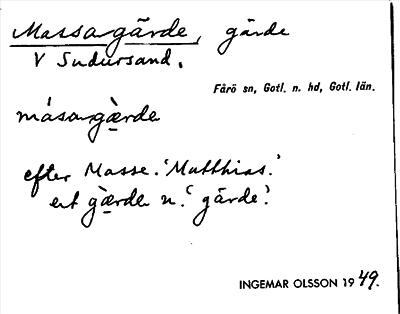 Massagärde, gärde
V Sudersand.
Fårö sn, Gotl. n. hd, Gotl. län.
måsagærde
efter Masse. 'Matthias.'
ert gærde n. 'gärde'.
INGEMAR OLSSON 1949.